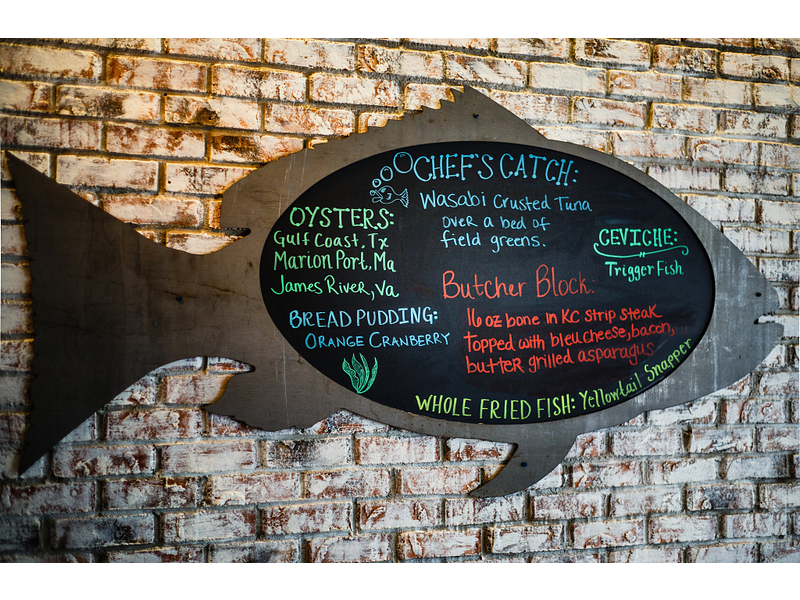 CHEF'S CATCH:
Wasabi Crusted Tuna
over a bed of
field greens.
OYSTERS:
Gulf Coast, Tx
Marion Port, Ma
James River, Va
CEVICHE:
Trigger Fish
BREAD PUDDING:
ORANGE CRANBERRY
Butcher Block:
16 oz bone in KC strip steak
topped with bleu cheese, bacon,
butter grilled asparagus
WHOLE FRIED FISH: Yellowtail Snapper